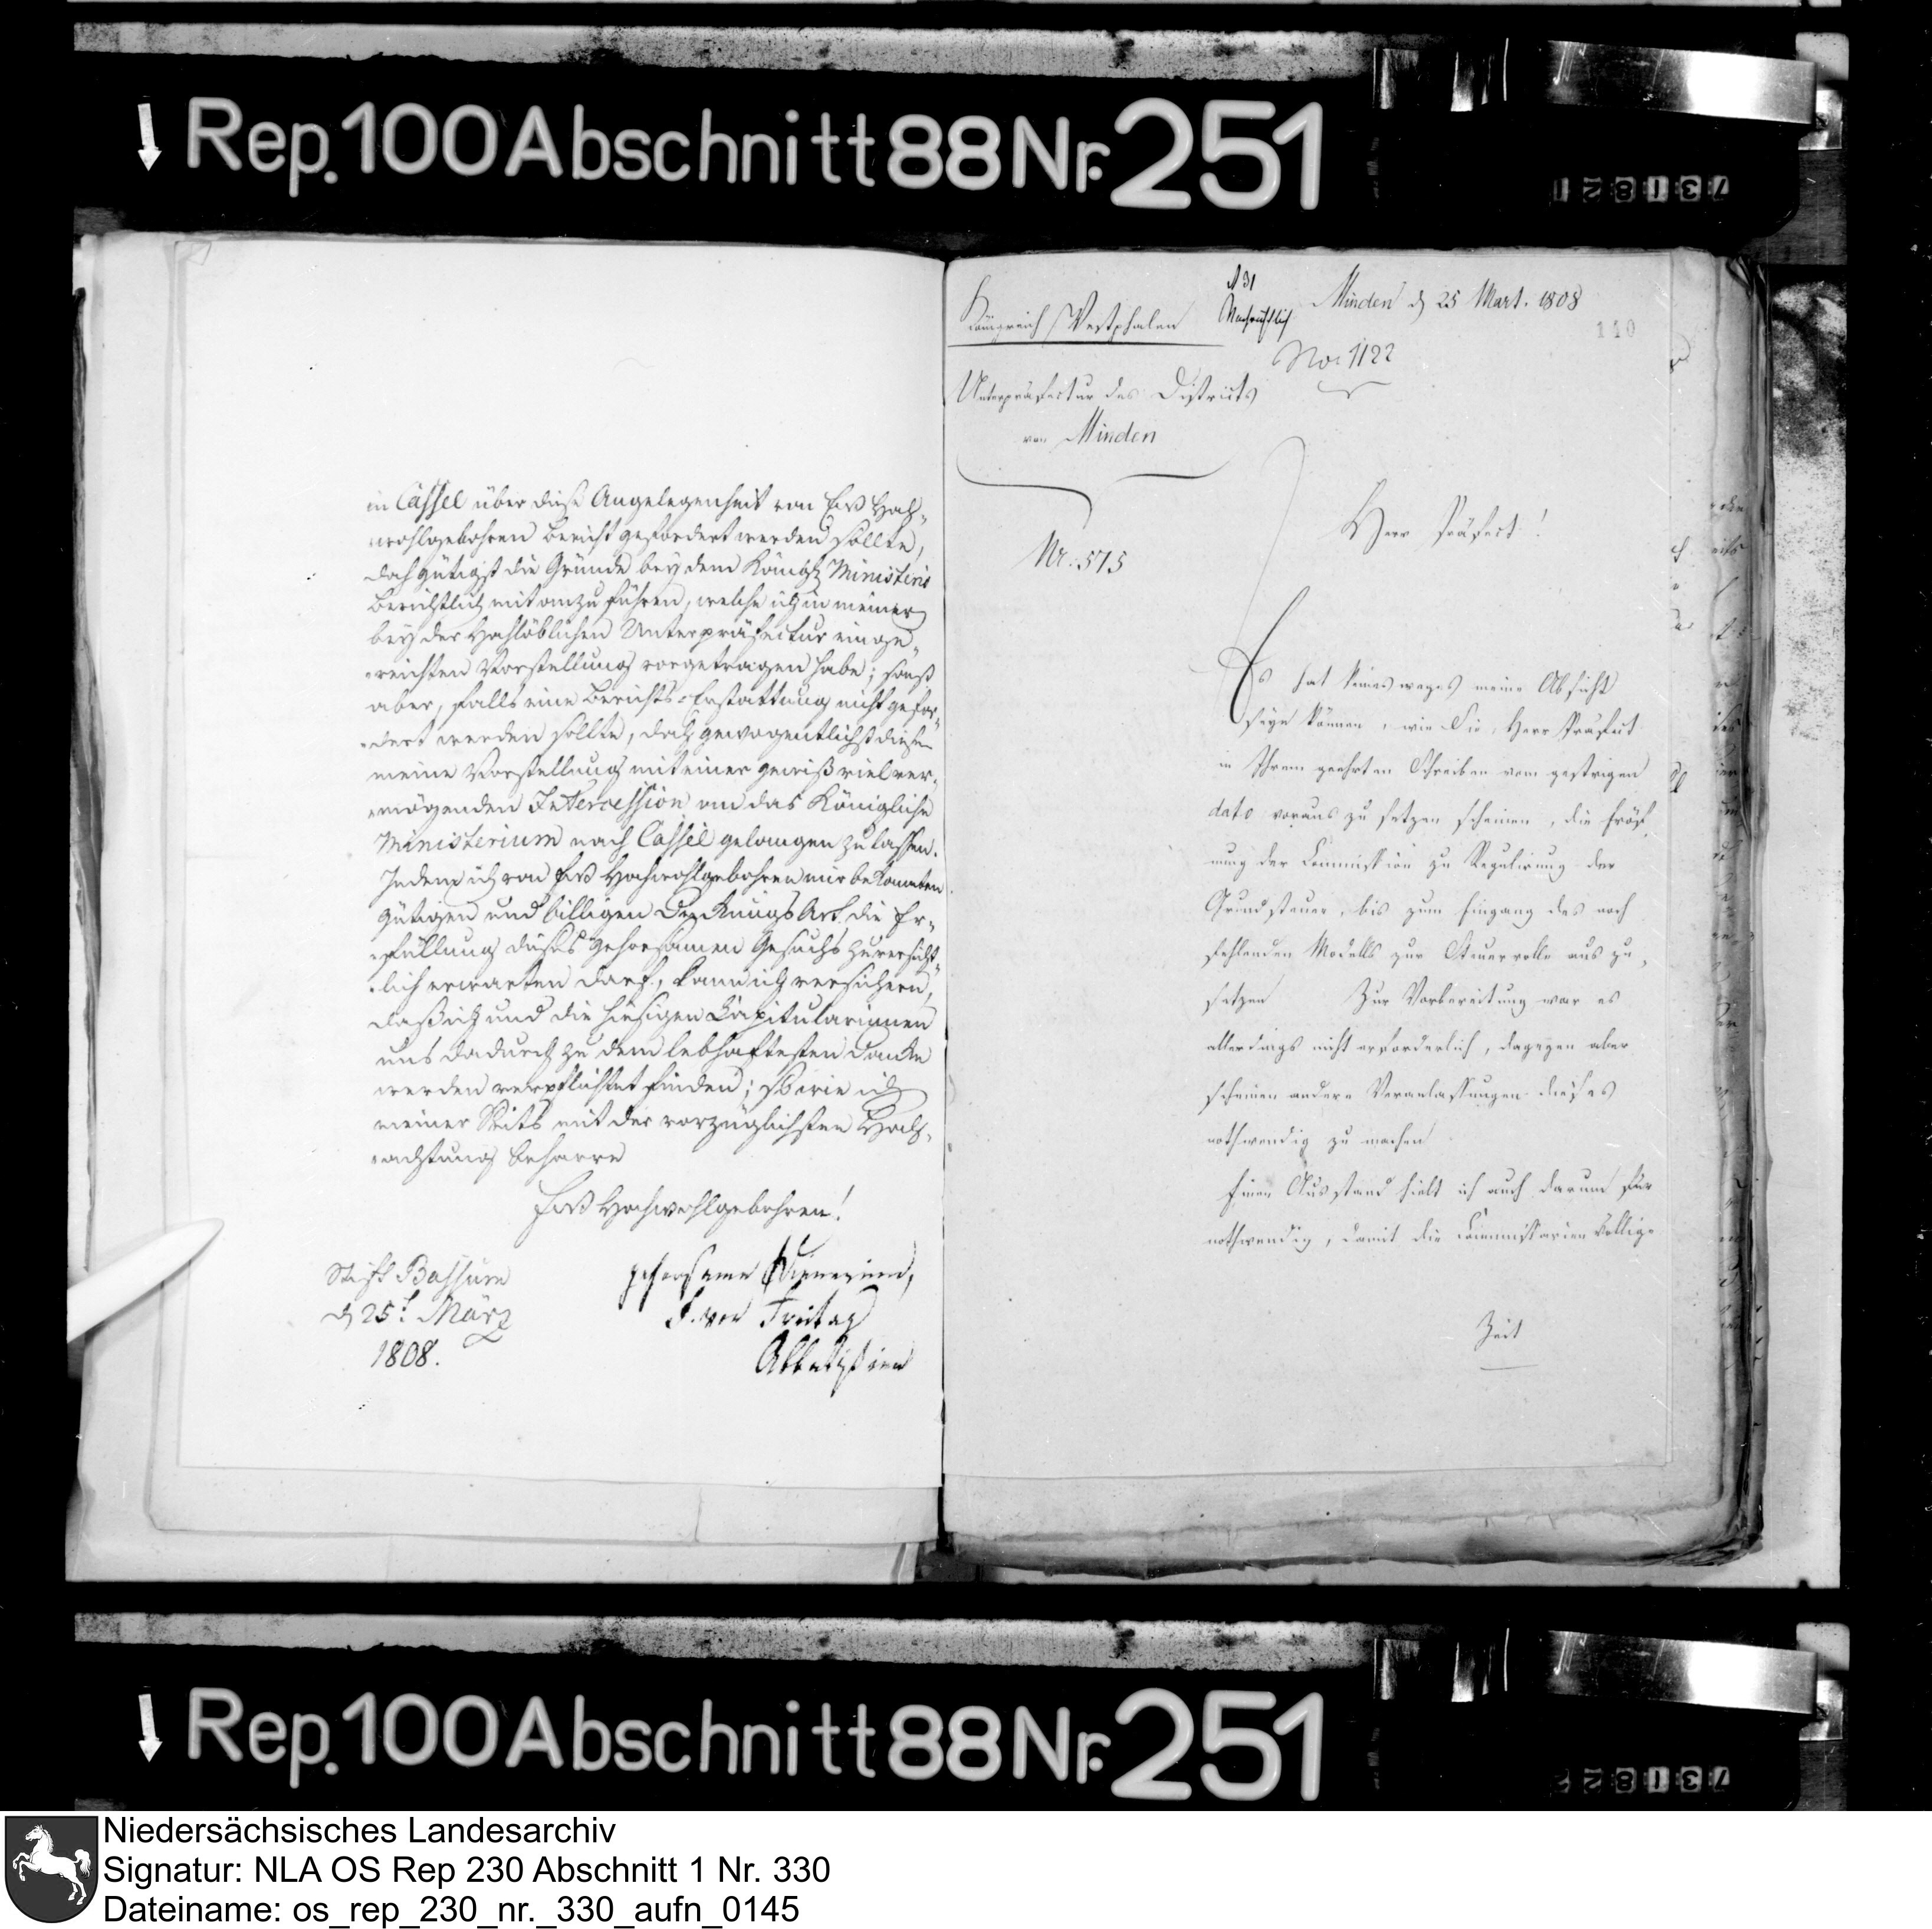 Rep. 100 Abschnitt 88 Nr. 251
731821
in Cassel über diese Angelegenheit von Ew. Hoch-
wohlgebohren Bericht gefordert werden sollte,
doch gütigst die Gründe bey dem Königl. Ministerio
berichtlich mit anzuführen, welche ich in meiner
bey der Hochlöblichen Unterpräfectur einge-
-reichten Vorstellung vorgetragen habe; sonst
aber, falls eine Berichts-Erstattung nicht gefor-
-dert werden sollte, doch gewogentlichst diese
meine Vorstellung mit einer gewiß viel ver-
-mögenden Intercession an das Königliche
Ministerium nach Cassel gelangen zu lassen.
Indem ich von Ew. Hochwohlgebohren mir bekannten
gütigen und billigen Denkungs Art die Er-
-füllung dieses gehorsamen Gesuchs zuversicht-
-lich erwarten darf, kann ich versichern,
daß ich und die hiesigen Capitularinnen
uns dadurch zu dem lebhaftesten Danke
werden verpflichtet finden; so wie ich
meiner Seits mit der vorzüglichsten Hoch-
-achtung beharre
Ew. Hochwohlgebohren!
gehorsame Dienerinn,
F. von Freitag
Abbatissinn
Stift Bassum
d 25t März
1808.
Königreich Westphalen
Unterpräfectur des Districts
von Minden
Nr. 575
N 31
Nachrichtlich
Minden d 25 Mart. 1808
110
No. 1122
Herr Präfect!
Es hat keinesweges meine Absicht
seyn können, wie Sie, Herr Präfect
in Ihrem geehrten Schreiben vom gestrigen
dato voraus zu setzen scheinen, die Eröf-
nung der Commission zu Regulirung der
Grundsteuer, bis zum Eingang des noch
fehlenden Modells zur Steuerrolle aus zu-
setzen Zur Vorbereitung war es
allerdings nicht erforderlich, dagegen aber
scheinen andere Veranlassungen dieses
nothwendig zu machen
Einen Ausstand hielt ich auch darum für
nothwendig, damit die Commissarien völlige
Zeit
Rep. 100 Abschnitt 88 Nr. 251
731822
Niedersächsisches Landesarchiv
Signatur: NLA OS Rep 230 Abschnitt 1 Nr. 330
Dateiname: os_rep_230_nr._330_aufn_0145